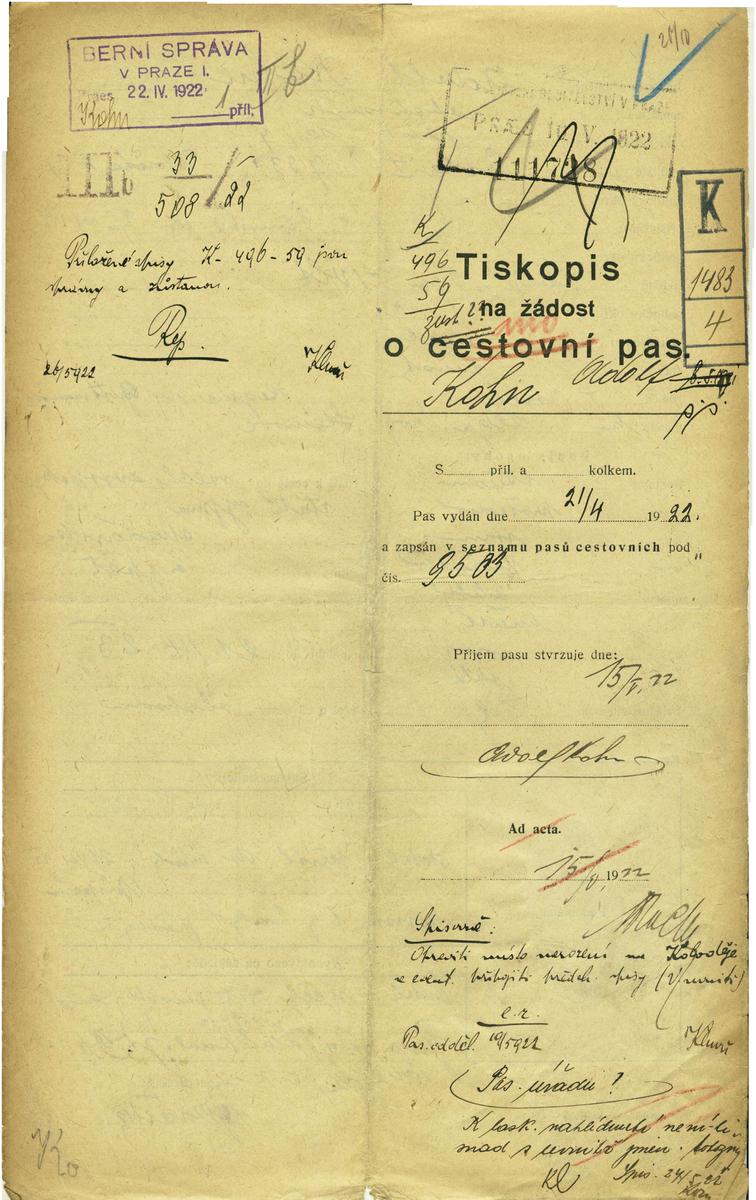 BERNÍ SPRÁVA
V PRAZE I.
Praes. 22. IV. 1922
Kohn 1 příl.
III b 33
508/22
Přiložené spisy K- 496-59 jsou
správny a zůstanou.
Rep.
26/5922
21/10
PRAES 1922
111728
K
1483
4
K/
496
59
Tiskopis
na žádost
o cestovní pas.
Kohn Adolf
S příl. a kolkem.
Pas vydán dne 21/4 1922.
a zapsán v seznamu pasů cestovních pod
čís. 9503
Příjem pasu stvrzuje dne:
15/V. 22
Adolf Kohn
Ad acta.
15/V. 1922
Spisovně:
Opraviti místo narození na Koloděje
a event. připojiti předch. spisy (Vnitří)
e.r.
Pas. odděl. 19/5922
Pas. úřadu!
K lask. nahlédnutí není-li
snad s
Spis. 24/5.22
Ko